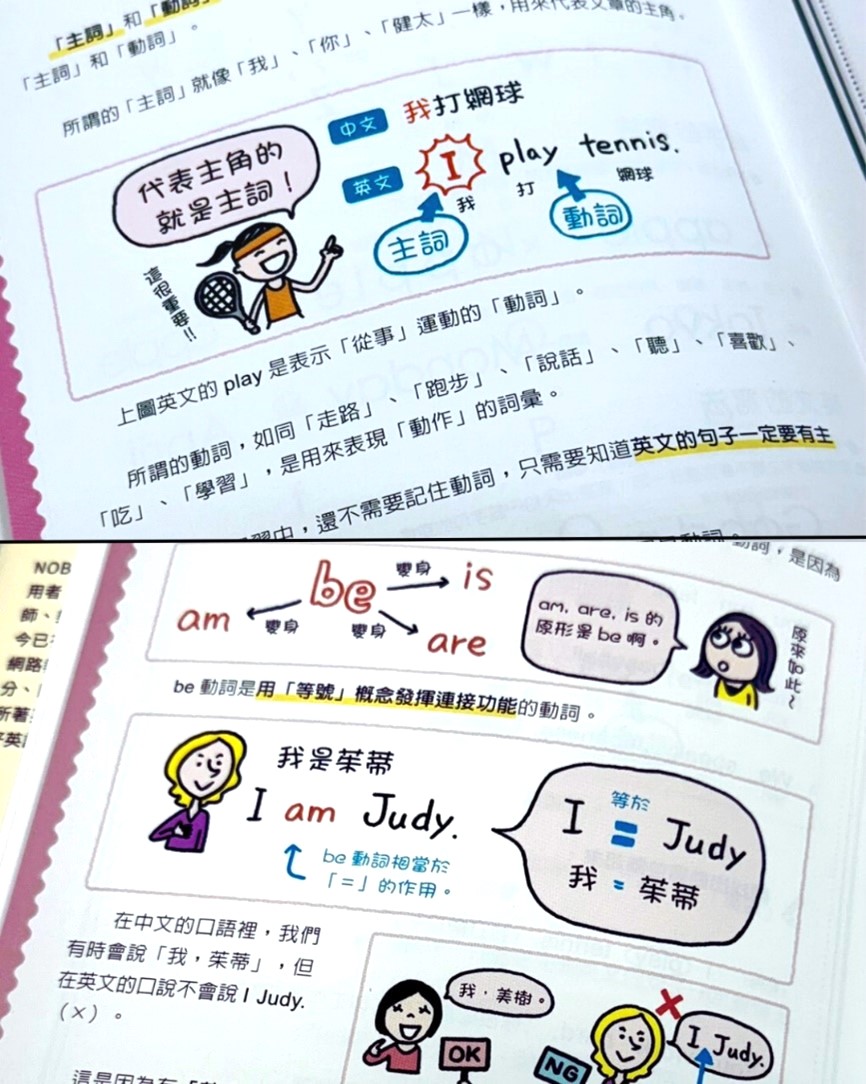 「主詞」和「動詞」
「主詞」和「動詞」。
所謂的「主詞」就像「我」、「你」、「健太」一樣，用來代表文章的主角。
代表主角的
就是主詞！
中文 我打網球
英文 I play tennis.
我 打 網球
主詞 動詞
這很重要!!
上圖英文的 play 是表示「從事」運動的「動詞」。
所謂的動詞，如同「走路」、「跑步」、「說話」、「聽」、「喜歡」、
「吃」、「學習」，是用來表現「動作」的詞彙。
習中，還不需要記住動詞，只需要知道英文的句子一定要有主
動詞，是因為
NOB
用者
師、
今已
網路
分、
所著
be 變身 is
am 變身 變身 are
am, are, is 的
原形是 be 啊。
原來如此~
be 動詞是用「等號」概念發揮連接功能的動詞。
我是茱蒂
I am Judy.
be 動詞相當於
「＝」的作用。
等於
I = Judy
我 = 茱蒂
在中文的口語裡，我們
有時會說「我，茱蒂」，但
在英文的口說不會說 I Judy.
(×)。
我，美樹。
OK
NG
I Judy.